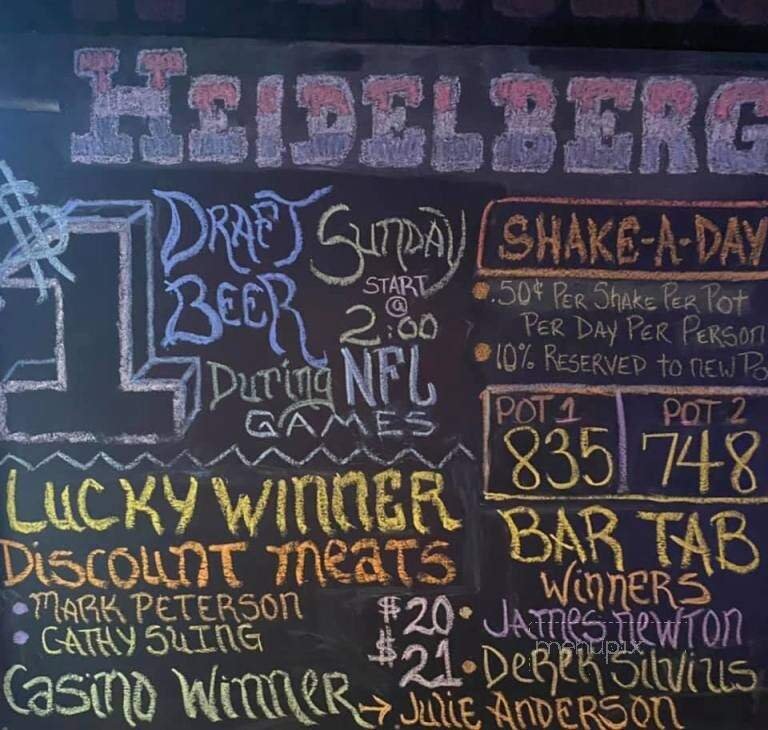 HEIDELBERG
$1 DRAFT BEER
SUNDAY
START
@
2:00
DURING NFL
GAMES
SHAKE-A-DAY
.50¢ PER SHAKE PER POT
PER DAY PER PERSON
10% RESERVED TO NEW PO
POT 1 POT 2
835 748
LUCKY WINNER
DISCOUNT MEATS
MARK PETERSON
CATHY SUING
BAR TAB
WINNERS
$20 JAMES NEWTON
$21 DEREK SILVIUS
CASINO WINNER → JULIE ANDERSON
menupix